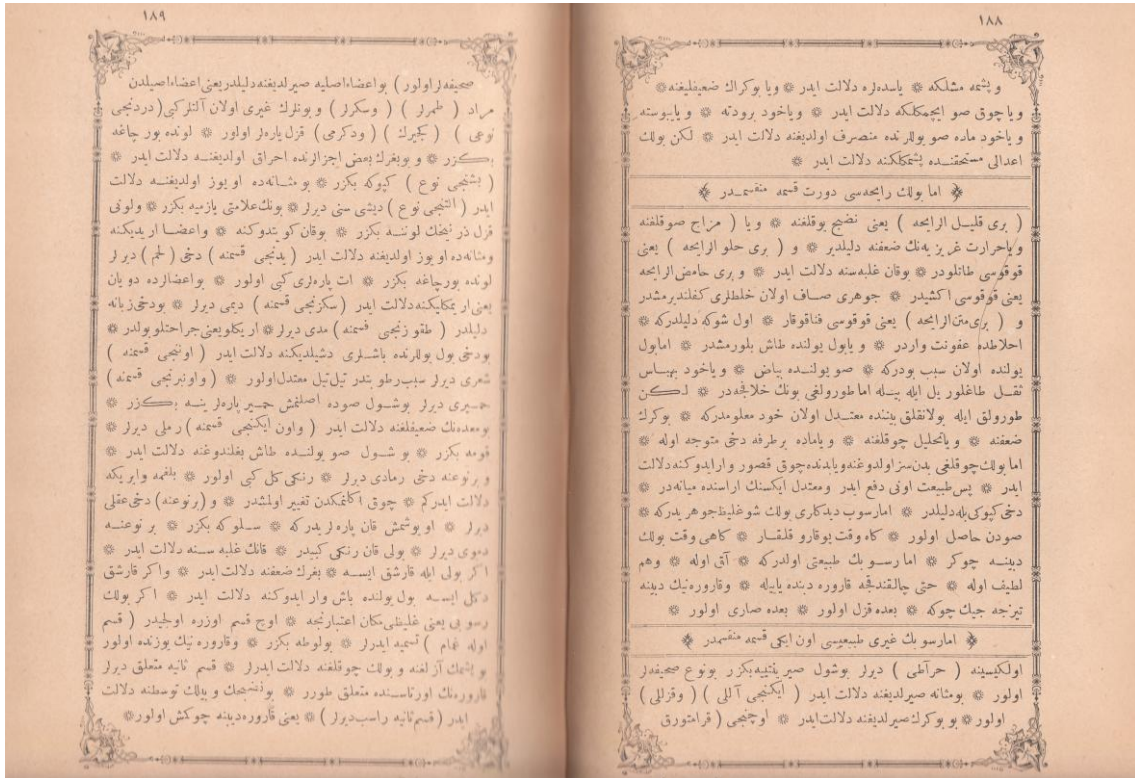 ١٨٨
و پشمه مشلكه ❊ ياسده‌لره دلالت ايدر ❊ ويا بوكرك ضعيفليغنه ❊
وياچوق صو ايچمكلكه دلالت ايدر ❊ وياخود برودته ❊ ويايبوسته
و ياخود ماده صو يوللرنده منصرف اولديغنه دلالت ايدر ❊ لكن بولك
اعدالى مستحقنده پشمكلكنه دلالت ايدر ❊
اما بولك رايحه‌سى دورت قسمه منقسمدر
( برى قليل الرايحه ) يعنى نضيج بوقلغنه ❊ ويا ( مزاج صوقلغنه
وياحرارت غريزيه‌نك ضعفنه دليلدر ❊ و ( برى حلو الرايحه ) يعنى
قوقوسى طاتلودر ❊ بوقان غلبه‌سنه دلالت ايدر ❊ و برى حامض الرايحه
يعنى قوقوسى اكشيدر ❊ جوهرى صاف اولان خلطلرى كفلندرمشدر
و ( برى متن الرايحه ) يعنى قوقوسى فناقوقار ❊ اول شوكه دليلدركه ❊
اخلاطده عفونت واردر ❊ و يابول يولنده طاش بلورمشدر ❊ امابول
يولنده اولان سبب بودركه ❊ صو يولنده بياض ❊ و ياخود بهاس
ثقل طاغلور يل ايله بيله اما طورولغى بونك خلافجه‌در ❊ لكن
طورولق ايله بولانقلق بيننده معتدل اولان خود معلومدركه ❊ بوكرك
ضعفنه ❊ و ياتحليل چوقلغنه ❊ و ياماده برطرفه دخى متوجه اوله ❊
اما بولك چوقلغى بدن سز اولدوغنه ويابدنده چوق قصور وارايدوكنه دلالت
ايدر ❊ پس طبيعت اونى دفع ايدر ومعتدل ايكسنك اراسنده ميانه‌در ❊
دخى كپوكى بله دليلدر ❊ امارسوب ديدكلرى بولك شوغليظ جوهريدركه ❊
صودن حاصل اولور ❊ كاه وقت يوقارو قلقار ❊ كاهى وقت بولك
دبينه چوكر ❊ اما رسوبك طبيعتى اولدركه ❊ آق اوله ❊ وهم
لطيف اوله ❊ حتى چالقندقجه قاروره دبنده ياييله ❊ وقاروره‌نيك دبينه
تيزجه جيك چوكه ❊ بعده قزل اولور ❊ بعده صارى اولور ❊
امارسوبك غيرى طبيعيسى اون ايكى قسمه منقسمدر
اولكيسينه ( حرآطى ) ديرلر بوشول صيرينتيه بكزر بونوع صحيفه‌لر
اولور ❊ بومثانه صيرلديغنه دلالت ايدر ( ايكنجيى آللى ) ( وقزللى )
اولور ❊ بو بوكرك صيرلديغنه دلالت ايدر ❊ اوچنجى ( قرامتورق
١٨٩
صحيفه‌لر اولور ) بو اعضاءاصليه صيرلديغنه دليلدر يعنى اعضاءاصيلدن
مراد ( طمرلر ) ( وسكرلر ) و بونلرك غيرى اولان آلتلر كبى ( دردنجى
نوعى ) ( كچيرك ) ( ودكرمى ) قزل ياره‌لر اولور ❊ لونده بور چاغه
بكزر ❊ و بو بغرك بعض اجزالرنده احراق اولديغنه دلالت ايدر ❊
( بشنجى نوع ) كپوكه بكزر ❊ بو مثانه‌ده اويوز اولديغنه دلالت
ايدر ( التنجى نوع ) ديشى سنى ديرلر ❊ بونك علامتى يازميه بكزر ❊ ولونى
قزل ذرنيخك لوننه بكزر ❊ بوقان كويندوكنه ❊ واعضا اريديكنه
ومثانه‌ده اويوز اولديغنه دلالت ايدر ( يدنجى قسمنه ) دخى ( لحم ) ديرلر
لونده بورچاغه بكزر ❊ ات ياره‌لرى كبى اولور ❊ بو اعضالرده دو يان
يعنى اريمكليكنه دلالت ايدر ( سكزنجى قسمنه ) ديمى ديرلر ❊ بودخى زبانه
دليلدر ( طقوزنجى قسمنه ) مدى ديرلر ❊ اريكلو يعنى جراحتلو بولدر ❊
بودخى بول يوللرنده باشلرى دشيلديكنه دلالت ايدر ( اوننجى قسمنه )
شعرى ديرلر سبب رطوبتدر تيل تيل معتدل اولور ❊ ( واونبرنجى قسمنه )
حميرى ديرلر بوشول صوده اصلنمش حمير ياره‌لرينه بكزر ❊
بومعده‌نك ضعيفلغنه دلالت ايدر ( واون ايكنجى قسمنه ) رملى ديرلر ❊
قومه بكزر ❊ بو شول صو يولنده طاش بغلندوغنه دلالت ايدر ❊
و برنوعنه دخى رمادى ديرلر ❊ رنكى كل كبى اولور ❊ بلغمه وايريكه
دلالت ايدركم ❊ چوق اكلنمكدن تغيير اولمشدر ❊ و ( برنوعنه ) دخى عقلى
ديرلر ❊ اويوشمش قان ياره‌لريدركه ❊ سلوكه بكزر ❊ برنوعنه
دموى ديرلر ❊ بولى قان رنكى كبيدر ❊ قانك غلبه سنه دلالت ايدر ❊
اكر بولى ايله قارشق ايسه ❊ بغرك ضعفنه دلالت ايدر ❊ واكر قارشق
دكل ايسه بول يولنده باش وار ايدوكنه دلالت ايدر ❊ اكر بولك
رسوبى يعنى غليظى مكان اعتبارنجه ❊ اوچ قسم اوزره اولجيدر ( قسم
اوله غمام ) تسميه ايدرلر ❊ بولوطه بكزر ❊ وقاروره نيك يوزنده اولور
بو پشمك آزلغنه و بولك چوقلغنه دلالت ايدرلر ❊ قسم ثانيه متعلق ديرلر
قاروره‌نك اورتاسنده متعلق طورر ❊ بو نضيجك و ييلك توسطنه دلالت
ايدر ( قسم ثانيه راسب ديرلر ) ❊ يعنى قاروره دبينه چوكش اولور ❊